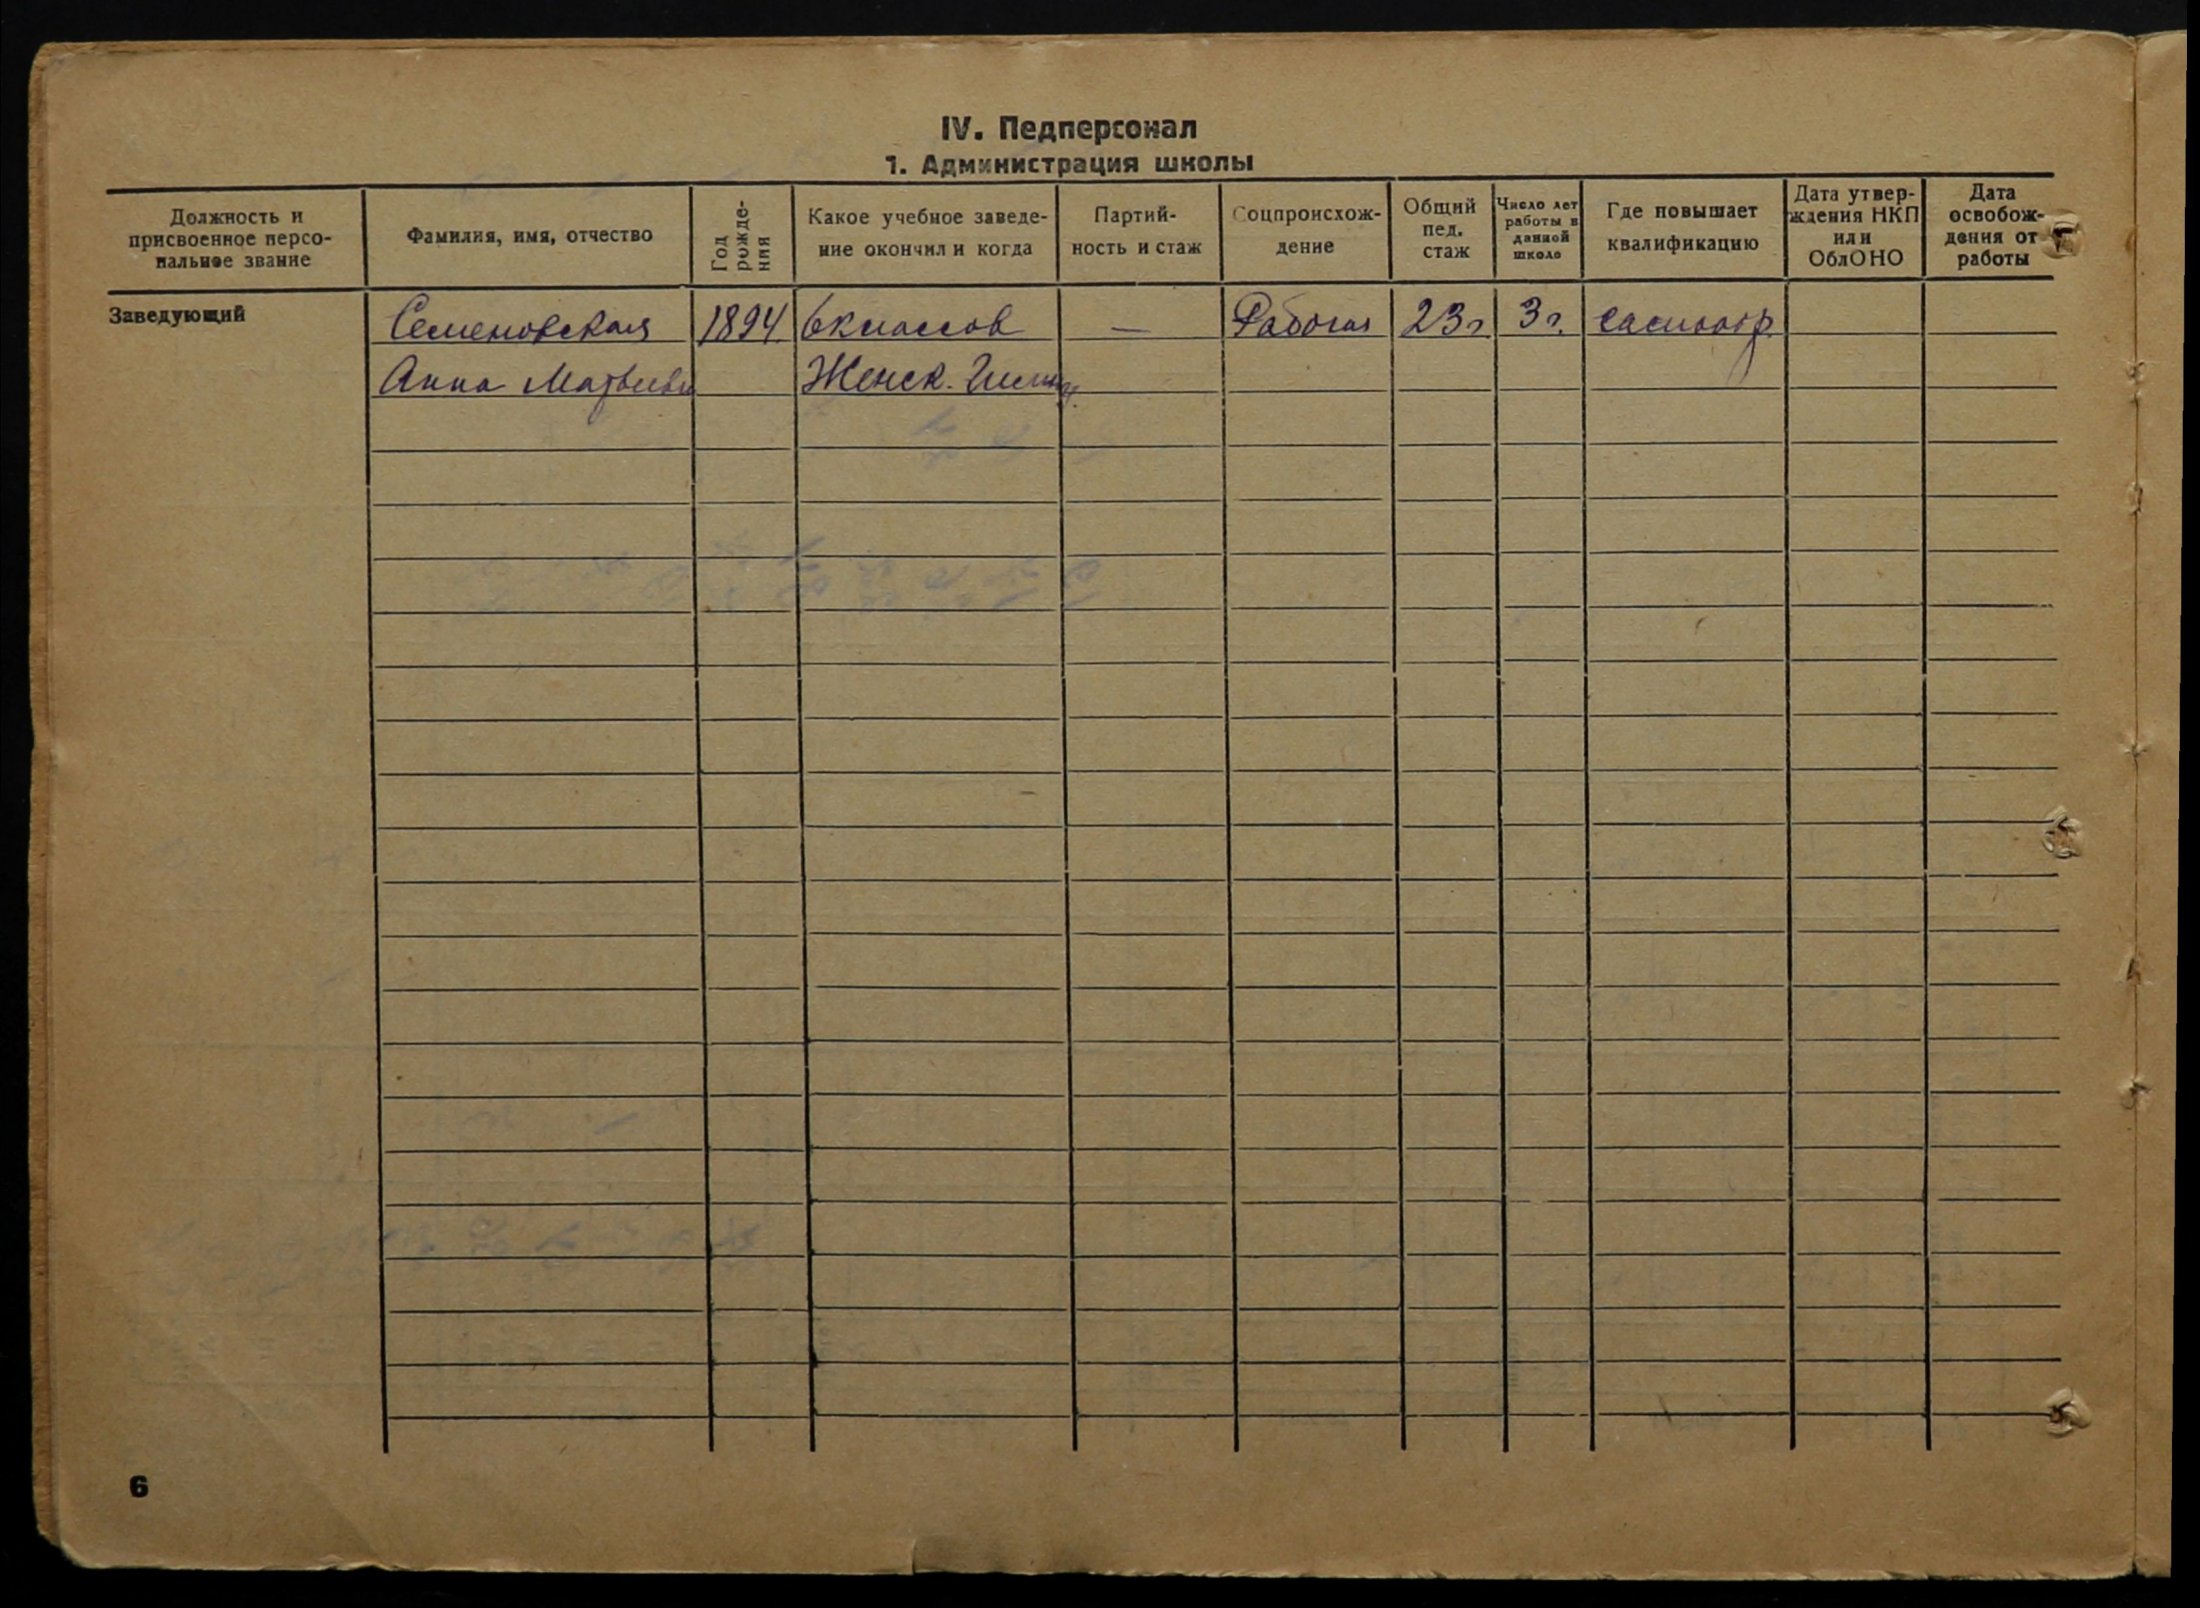 IV. Педперсонал
1. Администрация школы
Должность и
присвоенное персо-
нальное звание
Фамилия, имя, отчество
Год
рожде-
ния
Какое учебное заведе-
ние окончил и когда
Партий-
ность и стаж
Соцпроисхож-
дение
Общий
пед.
стаж
Число лет
работы в
данной
школе
Где повышает
квалификацию
Дата утвер-
ждения НКП
или
ОблОНО
Дата
освобож-
дения от
работы
Заведующий
Семеновская 1894 6 классов — Рабочая 23 г 3 г.
Анна Матвеевн Женск. Гимн.
6